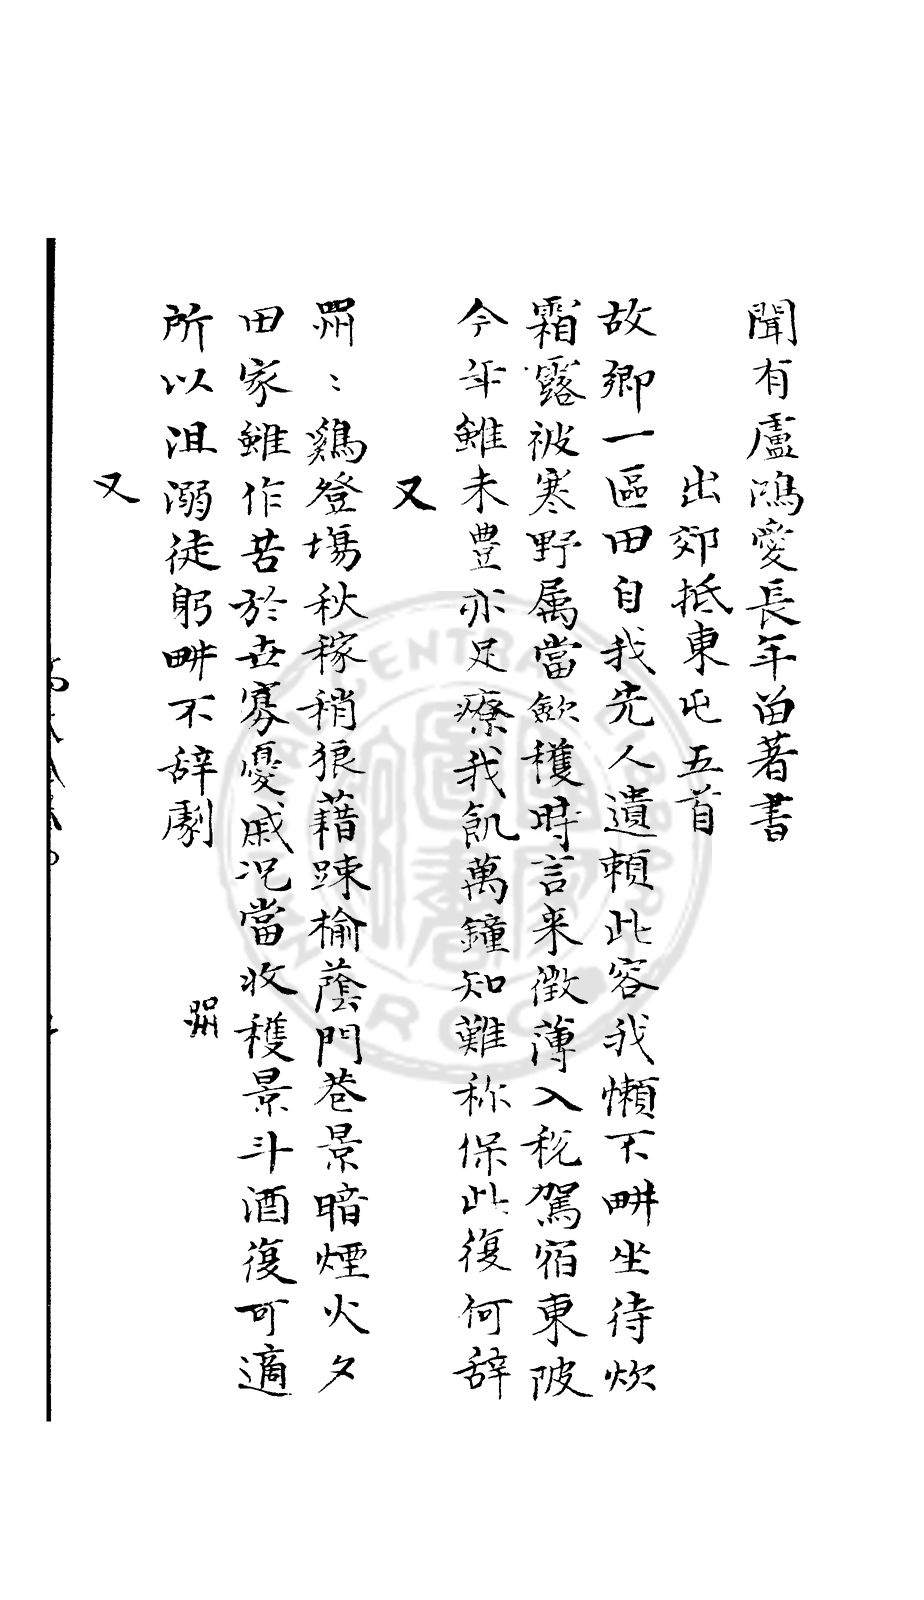 聞有盧鴻愛長年畄著書
出郊抵東屯五首
故鄉一區田自我先人遺頼此容我懶不畊坐待炊
霜露被寒野属當歛穫時言来徵薄入税駕宿東陂
今年雖未豊亦足療我飢萬鐘知難称保此復何辞
又
喌：鷄登塲秋稼稍狼藉踈榆蔭門巷景暗煙火夕
田家雖作苦於世寡憂戚况當收穫景斗酒復可適
所以沮溺徒躬畊不辞劇 喌
又